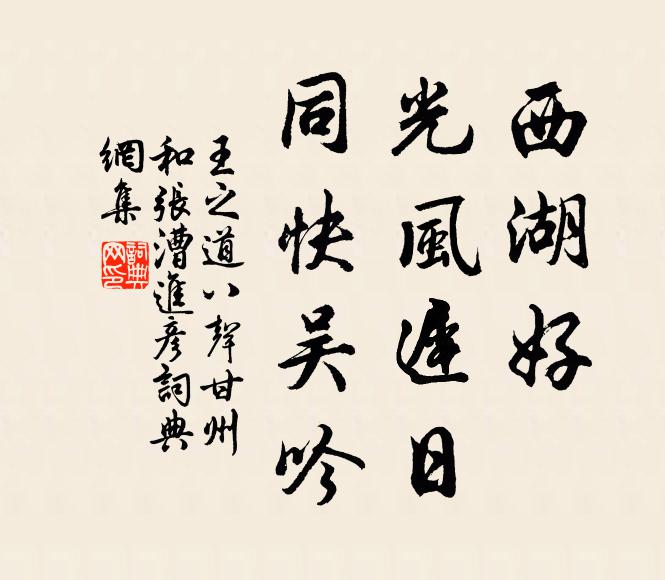 西湖好
光風遲日
同快吴吟
王之道八聲甘州
和張漕進彥詞典
網集
詞典網印